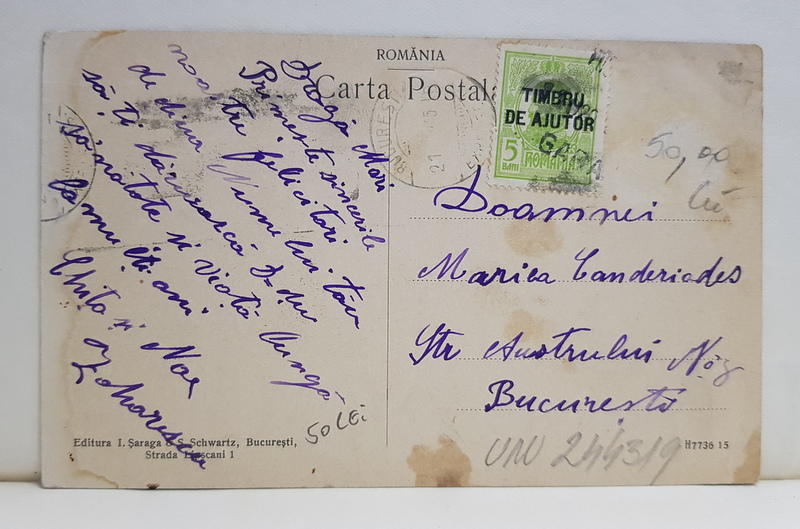 ROMÂNIA
Carta Postala
BUCUREST
TIMBRU
DE AJUTOR
GARA
5
BANI
ROMANIA
50,00
Lei
Dragă Mari
Primeste sincerile
noastre felicitări
de diua Numelui tău
să ți dăruiască D-deu
sănătate si viață lungă
la mulți ani
Ghița și Noe
Zaharescu
Doamnei
Marica Canderiades
Str Austrului No
Bucuresti
50 LEI
Editura I. Şaraga & S. Schwartz, Bucureşti,
Strada Lipscani 1
H7736 15
UNU 244319